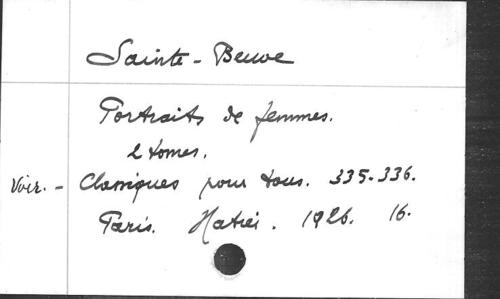 Sainte-Beuve
Portraits de femmes.
2 tomes.
Voir. - Classiques pour tous. 335-336.
Paris. Hatier. 1926. 16.